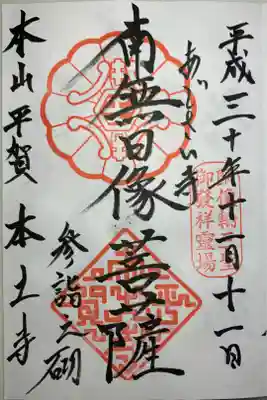 平成三十年十一月十一日
御發祥靈場
あじさい寺
南無日像菩薩
参詣之砌
本山平賀 本土寺